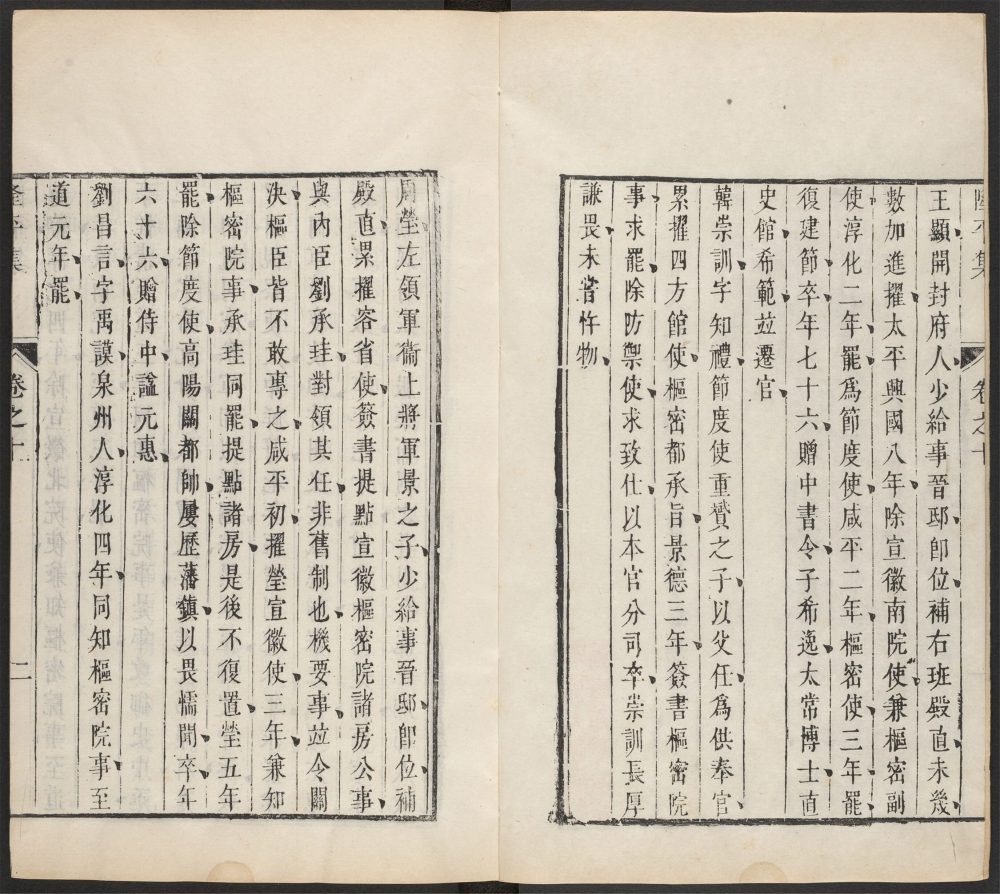 隆平集 卷之十
王顯開封府人少給事晉邸即位補右班殿直未幾
數加進擢太平興國八年除宣徽南院使兼樞密副
使淳化二年罷爲節度使咸平二年樞密使三年罷
復建節卒年七十六贈中書令子希逸太常博士直
史館希範竝遷官
韓崇訓字知禮節度使重贇之子以父任爲供奉官
累擢四方館使樞密都承旨景德三年簽書樞密院
事求罷除防禦使求致仕以本官分司卒崇訓長厚
謙畏未嘗忤物
周瑩左領軍衞上將軍景之子少給事晉邸卽位補
殿直累擢客省使簽書提點宣徽樞密院諸房公事
與內臣劉承珪對領其任非舊制也機要事竝令關
決樞臣皆不敢專之咸平初擢瑩宣徽使三年兼知
樞密院事承珪同罷提點諸房是後不復置瑩五年
罷除節度使高陽關都帥屢歷藩鎮以畏懦聞卒年
六十六贈侍中諡元惠
劉昌言字禹謨泉州人淳化四年同知樞密院事至
道元年罷
隆平集 卷之十 二